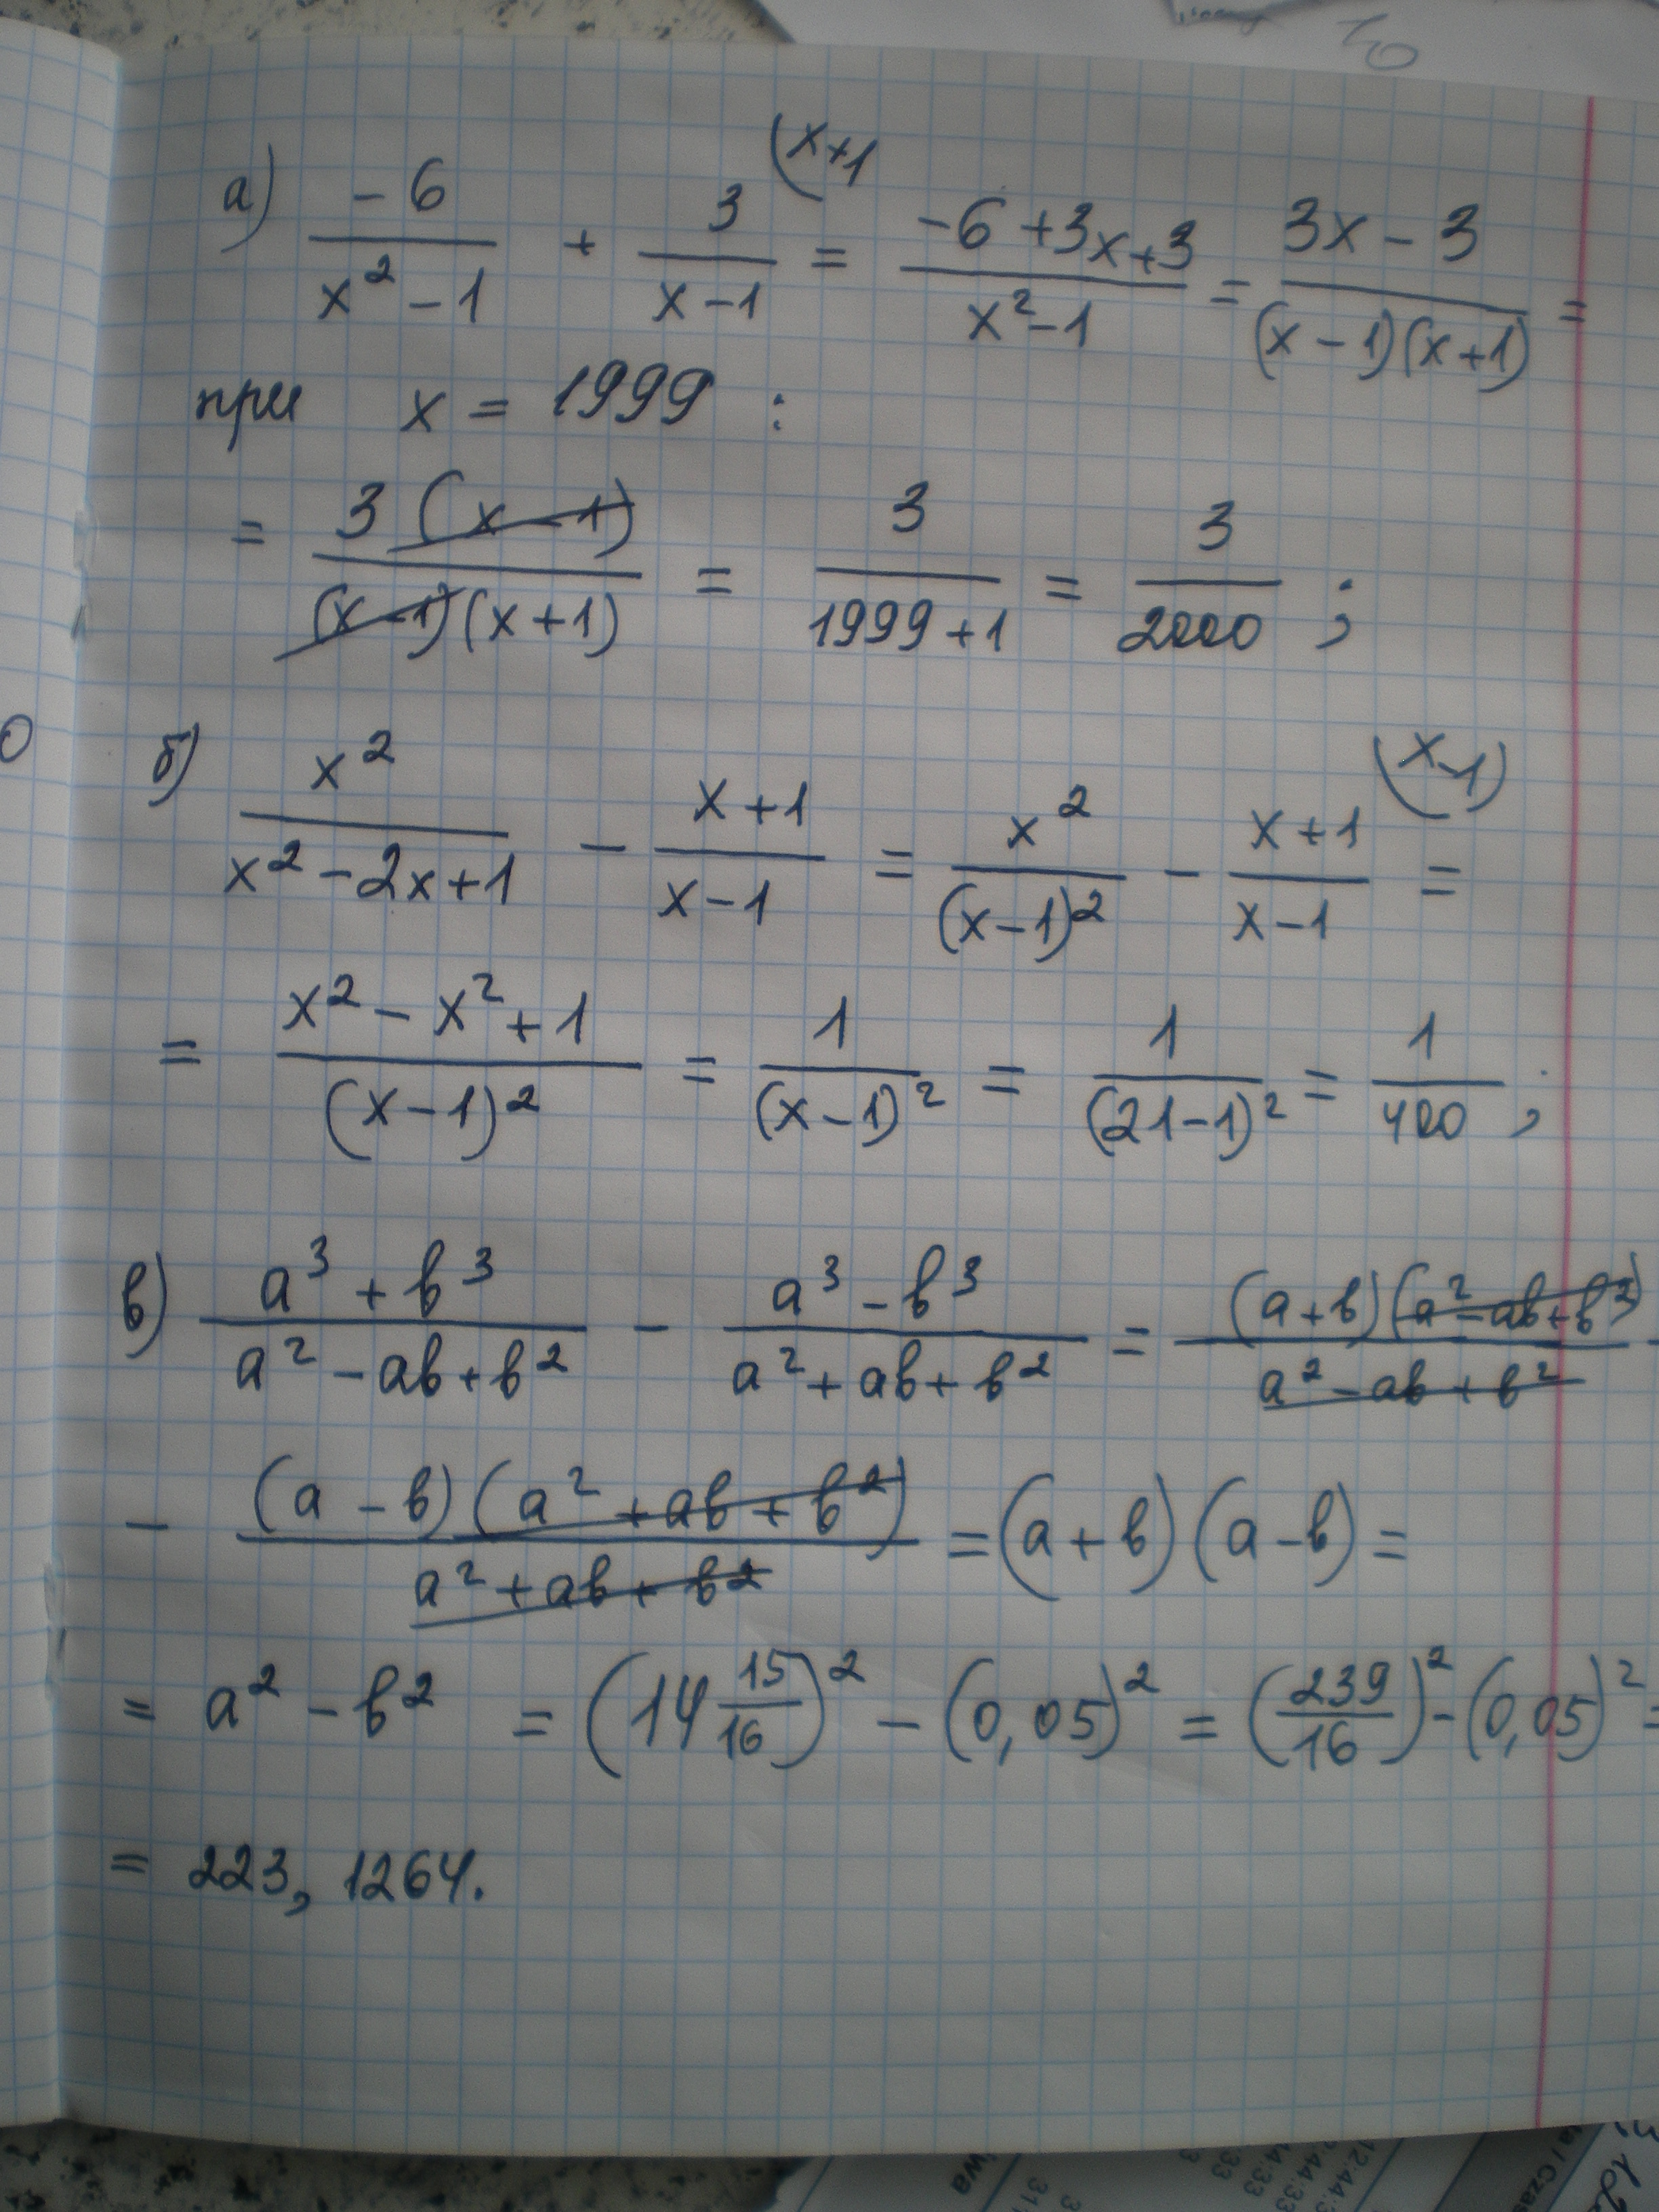 а) -6/(x²-1) + 3/(x-1) (x+1 = (-6+3x+3)/(x²-1) = (3x-3)/((x-1)(x+1)) =
при x = 1999 :
= 3(x-1)/((x-1)(x+1)) = 3/(1999+1) = 3/2000 ;
б) x²/(x²-2x+1) - (x+1)/(x-1) = x²/(x-1)² - (x+1)/(x-1) (x-1) =
= (x²-x²+1)/(x-1)² = 1/(x-1)² = 1/(21-1)² = 1/400 ;
в) (a³+b³)/(a²-ab+b²) - (a³-b³)/(a²+ab+b²) = (a+b)(a²-ab+b²)/(a²-ab+b²) -
- (a-b)(a²+ab+b²)/(a²+ab+b²) = (a+b)(a-b) =
= a²-b² = (14 15/16)² - (0,05)² = (239/16)² - (0,05)² =
= 223,1264.